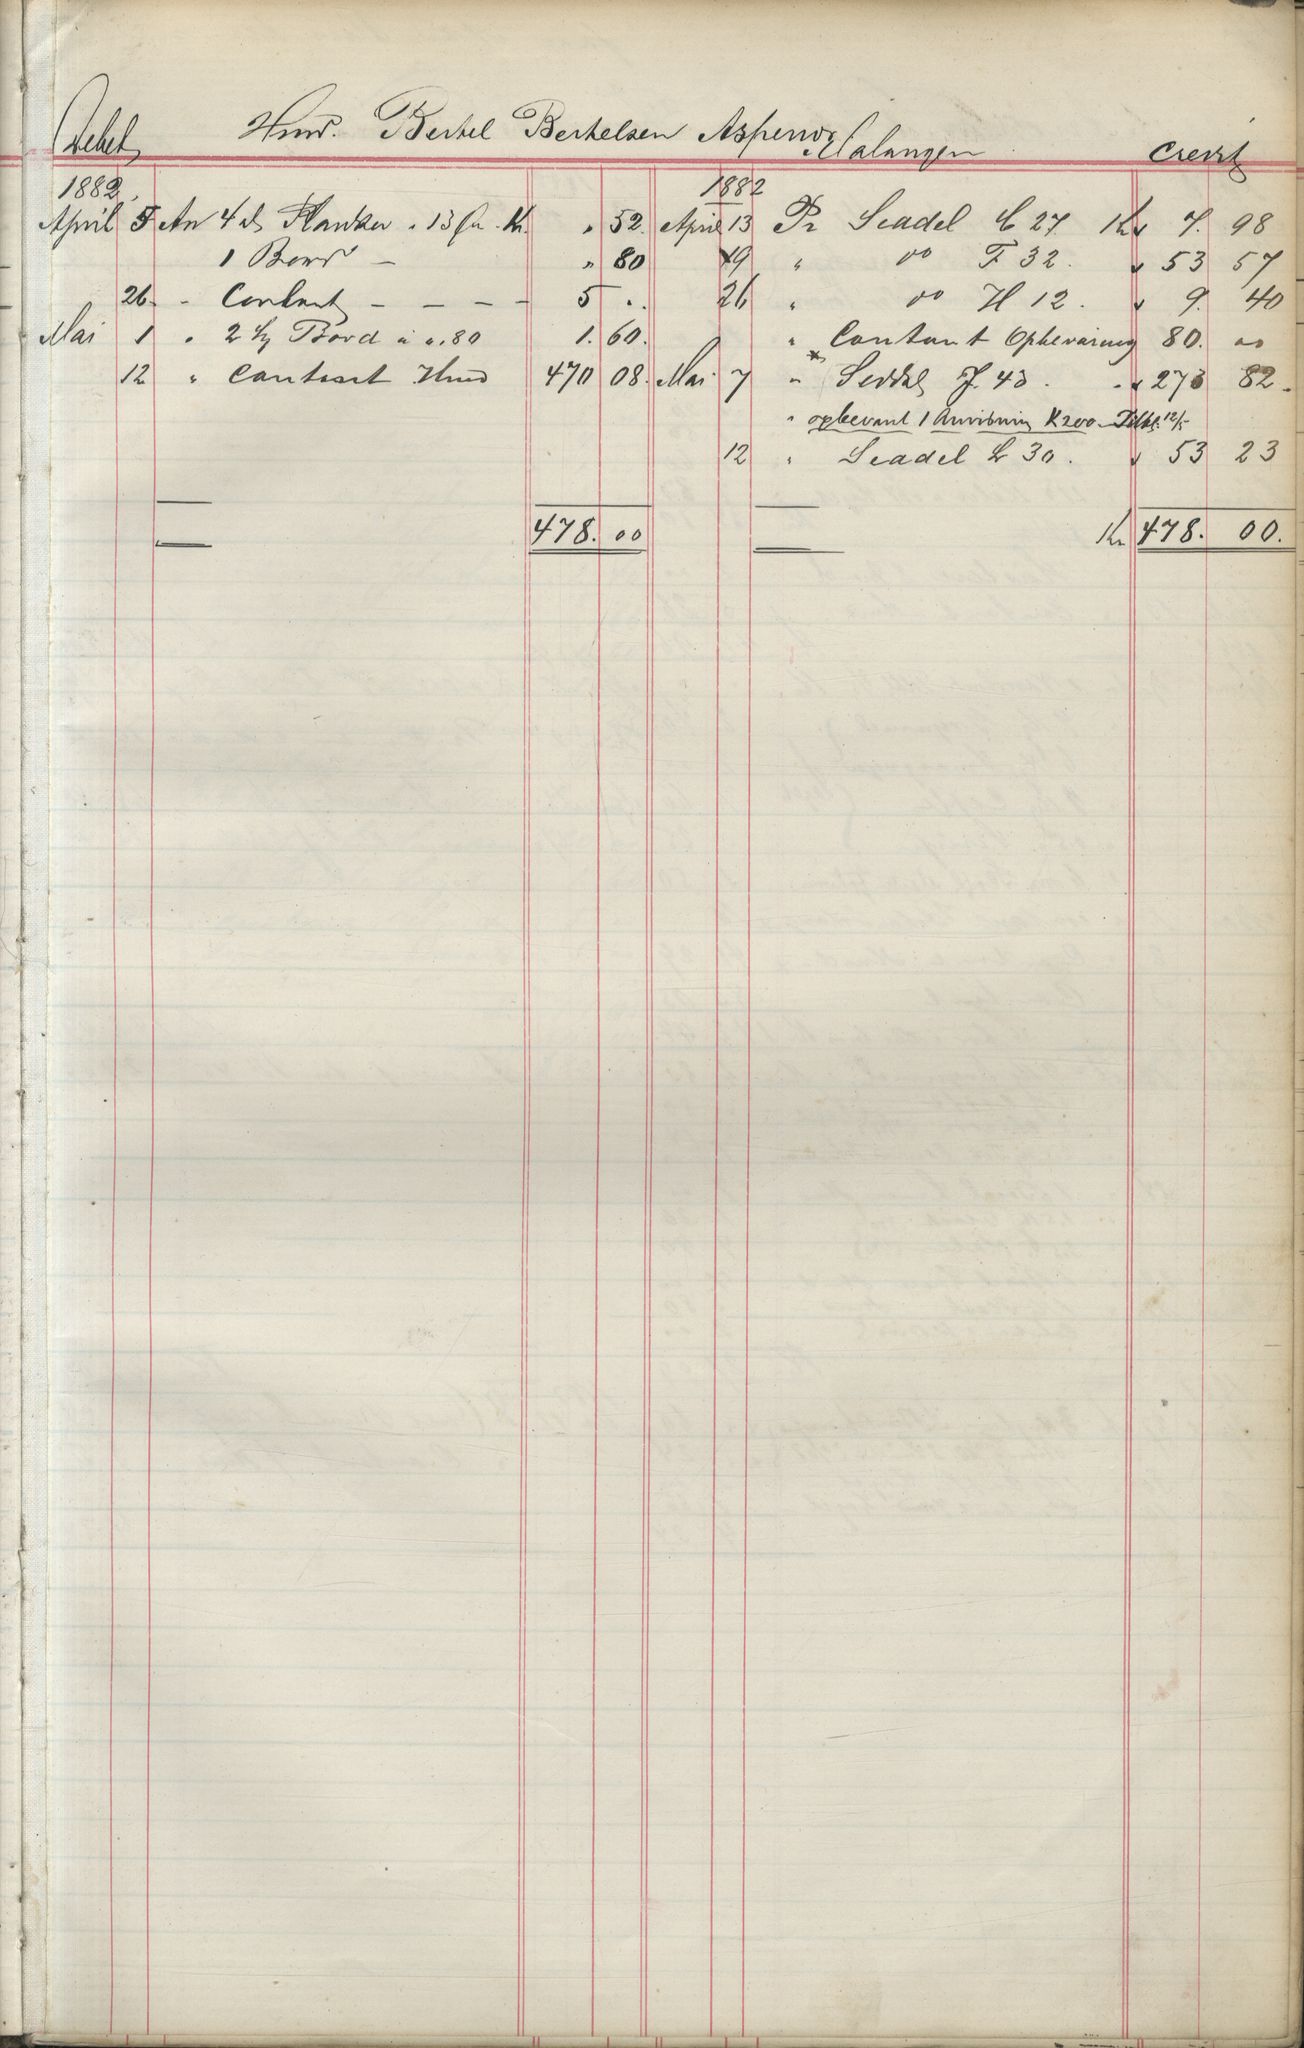 Debet Hmd. Bertel Bertelsen Aspenes Malangen Credit
1882 1882
April 5 An 4 ds Planker " 13 Øre Kr. " 52. April 13 Pr Seddel C 27 Kr 7. 98
1 Bord - " 80 19 " do F 32. " 53 57
26 - Contant - - - - 5 " . 26 " do H 12. " 9. 40
Mai 1 " 2 Bord a ". 80 1. 60. " Contant Opbevaring 80. "
12 " Contant Hmd 470 08. Mai 7 " Seddel J. 43. " 273 82.
" opbevart 1 Anvisning K 200. Tilbl. 12/5
12 " Seddel L 30. " 53 23
478. 00 Kr 478. 00.